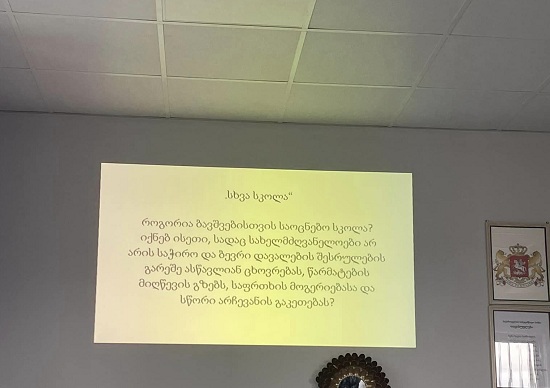 „სხვა სკოლა“
როგორია ბავშვებისთვის საოცნებო სკოლა?
იქნებ ისეთი, სადაც სახელმძღვანელოები არ
არის საჭირო და ბევრი დავალების შესრულების
გარეშე ასწავლიან ცხოვრებას, წარმატების
მიღწევის გზებს, საფრთხის მოგერიებასა და
სწორი არჩევანის გაკეთებას?